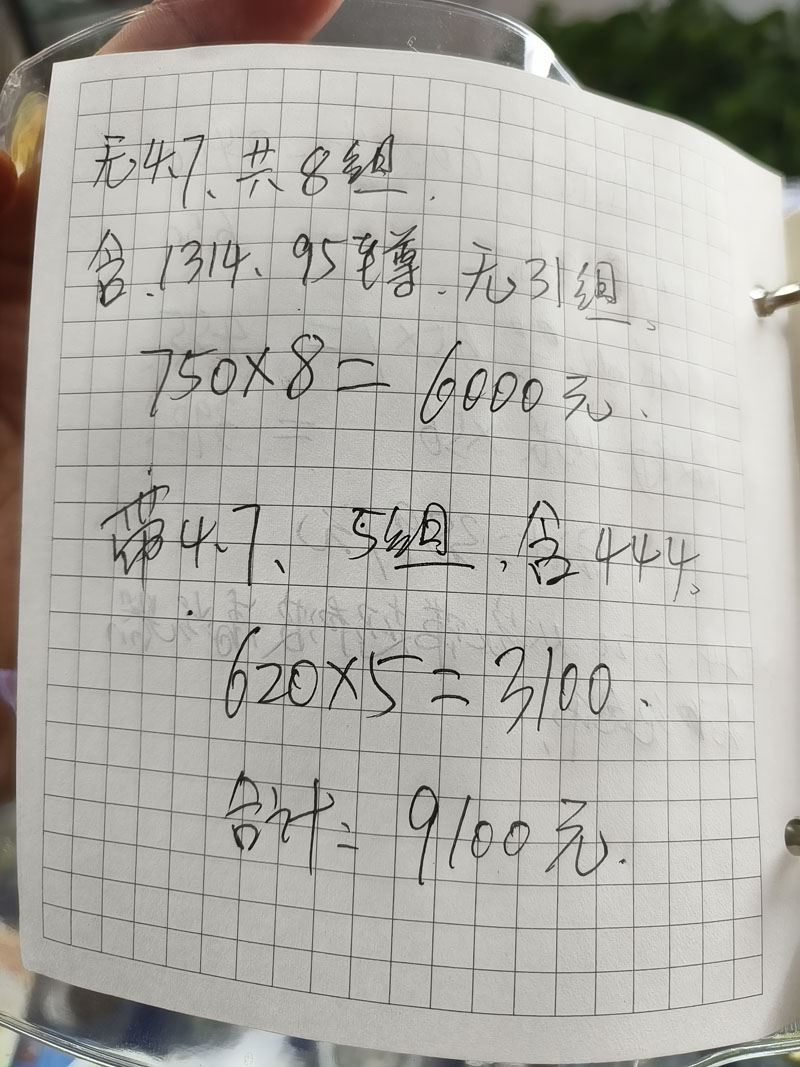 无4.7、共8组.
含.1314、95至尊.无31组、
750×8=6000元.
带4.7、5组.含444、
620×5=3100.
合计=9100元.